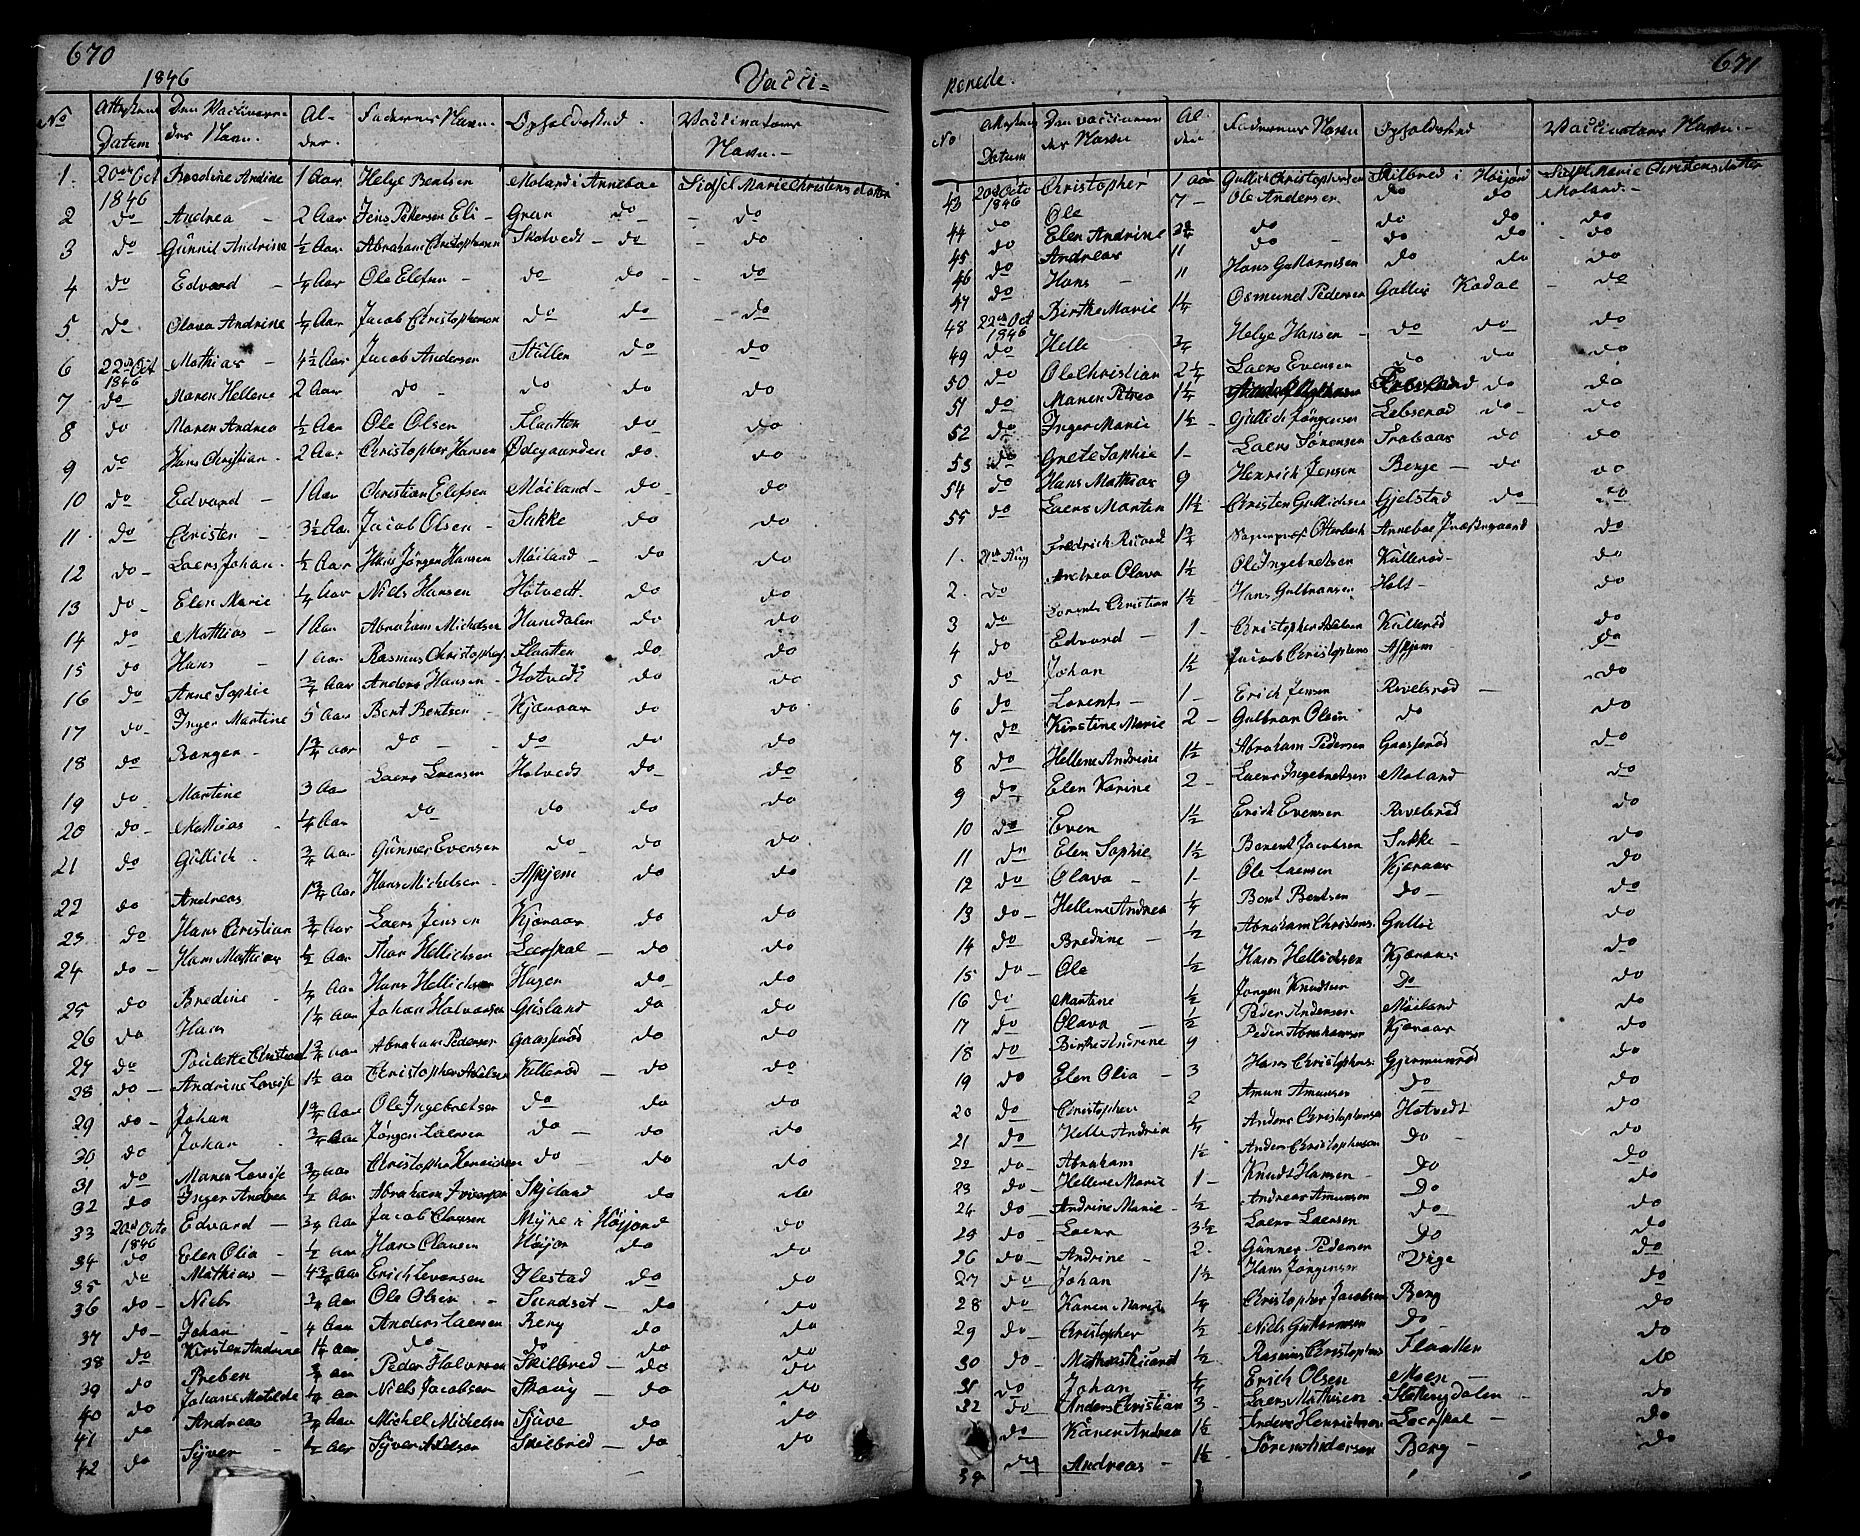 670
1846
Vacci-
No
Datum
Den Vaccinere-
des Navn.
Al-
der.
Faderens Navn.
Opholdssted.
Vaccinateurs
Navn.
1. 20de Oct 1846 Bredine Andine 1 Aar Helge Bentsen Moland i Anneboe Sidsel Marie Christensdatter
2 do Andrea 2 Aar Jens Pettersen Eli Gran do do
3 do Gunnil Andrine ½ Aar Abraham Christophersen Skotvedt do do
4 do Edvard ¼ Aar Ole Elefsen do do do
5 do Olava Andrine ¼ Aar Jacob Christophersen do do do
6 22de Oct 1846 Mathias 4½ Aar Jacob Andersen Stullen do do
7 do Maren Hellene 2 Aar do do do do
8 do Maren Andrea ½ Aar Ole Olsen Flaatten do do
9 do Hans Christian 2 Aar Christopher Hansen Ødegaarden do do
10 do Edvard 1 Aar Christian Elefsen Møiland do do
11 do Christen 3½ Aar Jacob Olsen Sukke do do
12 do Laers Johan ½ Aar Hans Jørgen Hansen Møiland do do
13 do Elen Marie ¼ Aar Niels Hansen Hotvedt do do
14 do Mathias 1 Aar Abraham Michelsen Hanedalen do do
15 do Hans 1 Aar Rasmus Christophers Flaatten do do
16 do Anne Sophie ¾ Aar Anders Hansen Hotvedt do do
17 do Inger Martine 5 Aar Bent Bentsen Kjæraas do do
18 do Berger 1¾ aar do do do do
19 do Martine 3 Aar Laers Laersen Hotvedt do do
20 do Mathias ¼ Aar do do do do
21 do Gullich ¾ Aar Gunner Evensen do do do
22 do Andreas 1¾ Aar Hans Michelsen Askjem do do
23 do Hans Christian ¾ Aar Laers Jensen Kjæraas do do
24 do Hans Mathias ½ Aar Thor Hellichsen Leerskal do do
25 do Bredine ¼ Aar Hans Hellichsen Hagen do do
26 do Hans 1¼ Aar Johan Halvorsen Grisland do do
27 do Paulette Christian 1¾ aar Abraham Pedersen Gaasserød do do
28 do Andrine Lovise 1½ aa Christopher Adelsen Kellerød do do
29 do Johan 1¾ Aar Ole Ingebretsen do do do
30 do Johan ¾ Aar Jørgen Laersen do do do
31 do Maren Lovise ¾ aar Christopher Henrichsen do do do
32 do Inger Andrea ½ Aar Abraham Iversen Skjeland do do
33 20de Octo 1846 Edvard ¾ Aar Jacob Clausen Myre i Høijord do
34 do Elen Olia ½ aar Hans Clausen Høijor do do
35 do Mathias 4¾ Aar Erich Levorsen Ilestad do do
36 do Niels ¾ Aar Ole Olsen Sundset do do
37 do Johan 4 Aar Anders Laersen Berg do do
38 do Kirsten Andrine 1¼ Aar do do do do
39 do Preben ¾ aar Peder Halvorsen Skilbred do do
40 do Johane Matilde ¼ Aar Niels Jacobsen Skoug do do
41 do Andreas ¾ Aar Michel Michelsen Sjuve do do
42 do Syver ½ aar Syver Adelsen Skilbred do do
671
nerede.
No
Datum
Den vaccineren
des Navn
Al-
der
Faderens Navn
Opholdssted
Vaccinateurs Navn.
43 20de Octo 1846 Christopher 1 aar Gullich Christophersen Skilbred i Høijord Sidsel Marie Christensdatter Moland
44 do Ole 7 Ole Andersen do do do
45 do Elen Andrine do do do do
46 do Andreas 11 do do do do
47 do Hans 11 Hans Guttormsen do do do
48 22de Oct 1846 Birthe Marie 1¼ Osmund Pedersen Gallis Kodal do
49 do Helle ¾ Helge Hansen do do do
50 do Ole Christian 2¼ Laers Evensen do do do
51 do Maren Petrea 1¼ do do
52 do Inger Marie 1½ Gullich Jørgensen Lebserød do do
53 do Grete Sophie 1 Laers Sørensen Trobaas do do
54 do Hans Mathias 9 Henrich Jensen Berge do do
55 do Laers Martin 1½ Christen Gullichsen Gjelstad do do
1. 21de Aug Fredrich Ricard 1¾ Otterbech Anneboe Præstegaard do
2. do Andrea Olava 1½ Ole Ingebretsen Kullerød do
3 do Lorents Christian 1½ Hans Gulbransen Holt do
4 do Edvard 1 Christopher Adelsen Kullerød do
5 do Johan 1½ Jacob Christophers Askjem do
6 do Lorents 1 Erich Jensen Revelsrød do
7 do Kirstine Marie 2 Gulbran Olsen do do
8 do Hellene Andrine 1½ Abraham Pedersen Gaasserød do
9 do Elen Karine 2 Laers Ingebretsen Moland do
10 do Even 1½ Erich Evensen Revelsrød do
11 do Elen Sophie 1½ Berent Jacobsen Sukke do
12 do Olava 1 Ole Laersen Kjæraas do
13 do Hellene Andrea ¼ Bent Bentsen do do
14 do Bredine ½ Abraham Christens. Gallis do
15 do Ole ½ Hans Hellichsen Kjæraas do
16 do Martine ½ Jørgen Knudsen Do do
17 do Olava ½ Peder Andersen Møiland do
18 do Birthe Andrine 9 Peder Abrahamsen Kjæraas do
19 do Elen Olia 3 Hans Christophers. Gjermunrød do
20 do Christopher 2 Amun Amunsen do do
21 do Helle Andrea ¼ Anders Christophersen Hotvedt do
22 do Abraham 1½ Anders Christophersen do do
23 do Hellene Marie 1 Knud Hansen Do do
24 do Andrine Marie ½ Andreas Amunsen Do do
25 do Laers 3½ Laers Laersen do do
26 do Andrine 2. Gunner Pedersen Do do
27 do Johan 1½ Hans Jørgensen Virge do
28 do Karen Marie ¼ Christopher Jacobsen Berg do
29 do Christopher ½ Niels Guttormsen do do
30 do Mathias Ricard ½ Rasmus Christophers Flaatten do
31 do Johan ¼ Erich Olsen Moen do
32 do Anders Christian 3 Laers Mathisen do
do Karen Andrea 1½ Anders Henrichsen Leerskal do
34 do Andreas 1½ Søren Andersen Berg do